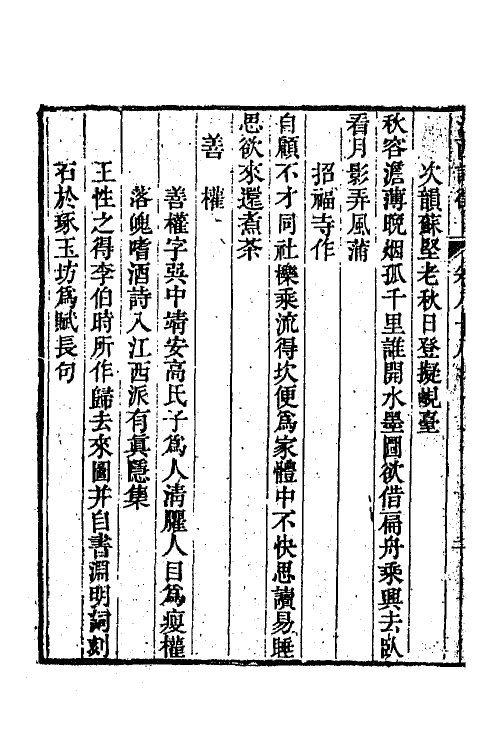 次韻蘇堅老秋日登擬峴臺
秋容澹薄晚烟孤千里誰開水墨圖欲借扁舟乘興去臥
看月影弄風蒲
招福寺作
自顧不才同社櫟乘流得坎便爲家體中不快思讀易睡
思欲來還煮茶
善權
善權字巽中靖安高氏子爲人清臞人目爲瘦權
落魄嗜酒詩入江西派有眞隱集
王性之得李伯時所作歸去來圖并自書淵明詞刻
石於琢玉坊爲賦長句